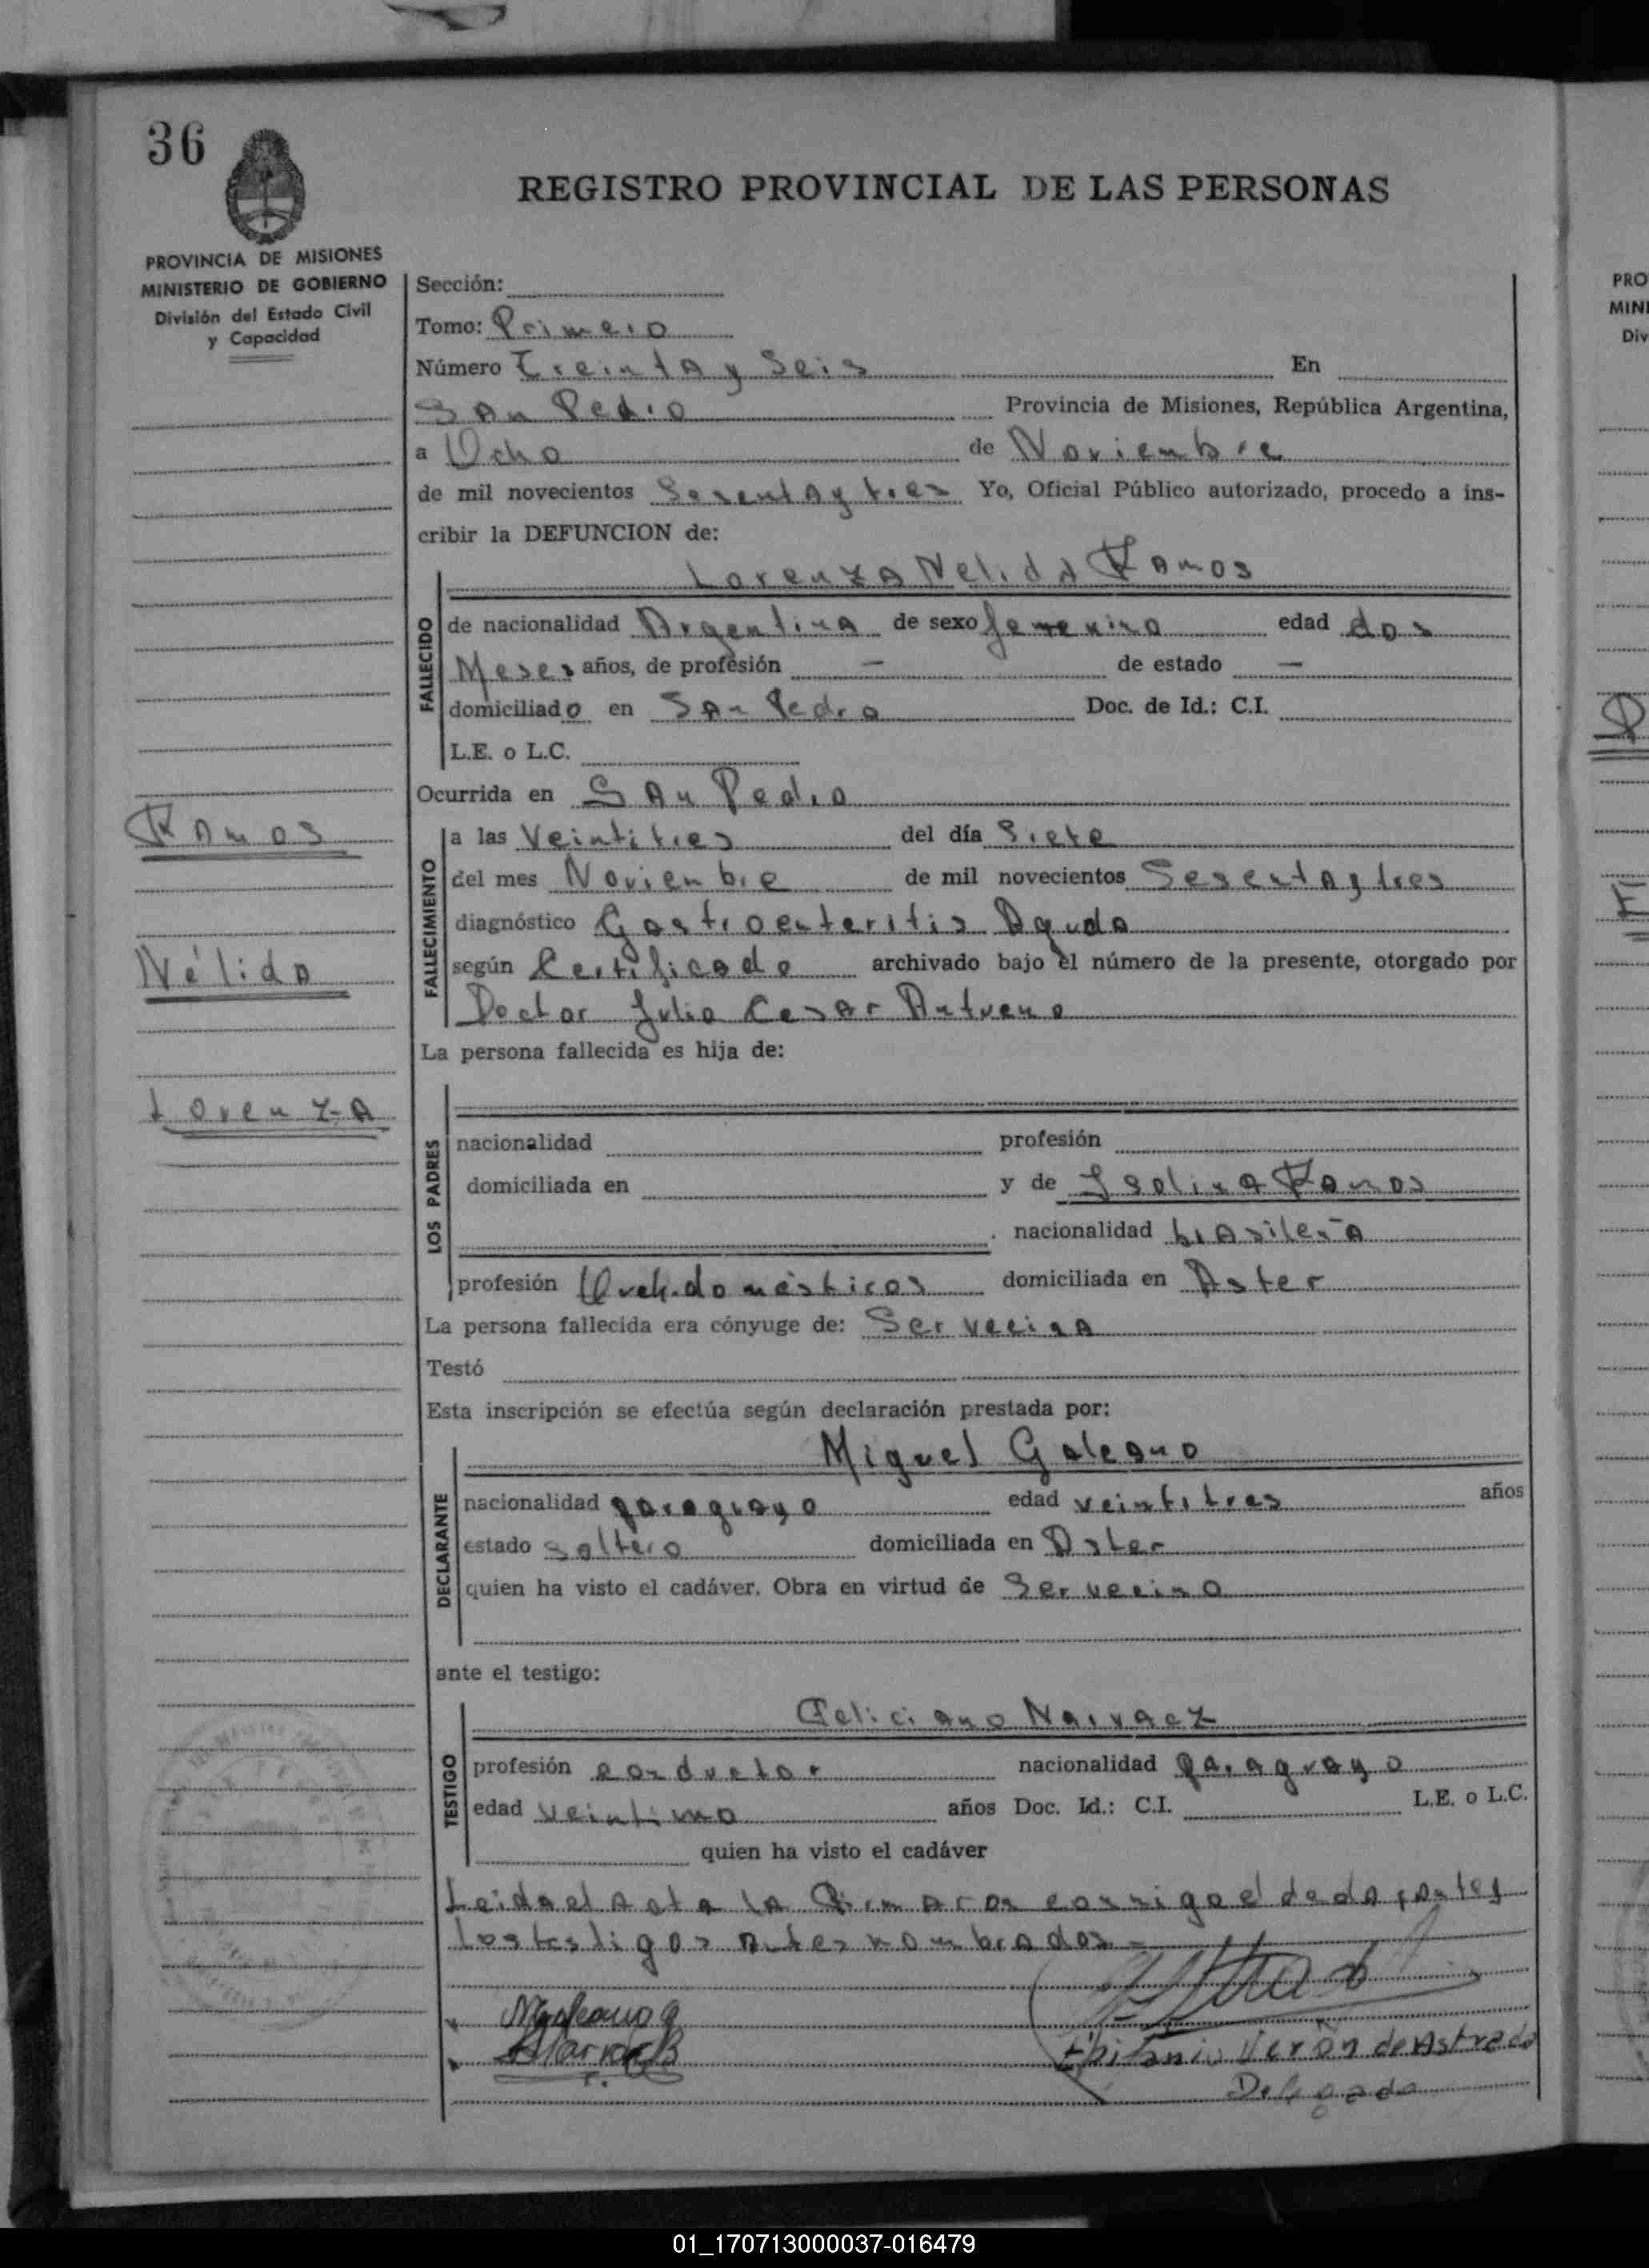 36
REGISTRO PROVINCIAL DE LAS PERSONAS
PROVINCIA DE MISIONES
MINISTERIO DE GOBIERNO
División del Estado Civil
y Capacidad
Sección:
Tomo: Primero
Número Treinta y Seis En
San Pedro Provincia de Misiones, República Argentina,
a Ocho de Noviembre
de mil novecientos Sesenta y tres Yo, Oficial Público autorizado, procedo a ins-
cribir la DEFUNCION de:
Lorenza Nelida Ramos
FALLECIDO
de nacionalidad Argentina de sexo femenino edad dos
Meses años, de profesión — de estado —
domiciliado en San Pedro Doc. de Id.: C.I.
L.E. o L.C.
Ocurrida en San Pedro
Ramos
FALLECIMIENTO
a las Veintitres del día Siete
del mes Noviembre de mil novecientos Sesenta y tres
diagnóstico Gastroenteritis Aguda
Nélida
según Certificado archivado bajo el número de la presente, otorgado por
Doctor Julio Cesar
La persona fallecida es hija de:
Lorenza
LOS PADRES
nacionalidad profesión
domiciliada en y de Isolina Ramos
nacionalidad brasileña
profesión Queh. domésticos domiciliada en Aster
La persona fallecida era cónyuge de: Ser vecina
Testó
Esta inscripción se efectúa según declaración prestada por:
Miguel Galeano
DECLARANTE
nacionalidad paraguayo edad veintitres años
estado soltero domiciliada en Aster
quien ha visto el cadáver. Obra en virtud de Ser vecino
ante el testigo:
Feliciano Narvaez
TESTIGO
profesión conductor nacionalidad Paraguayo
edad veintiuno años Doc. Id.: C.I. L.E. o L.C.
quien ha visto el cadáver
Leida el acta la Firmaron conmigo el
los testigos antes nombrados -
Epifanio Verón de Astrada
Delegado
PRO
MINI
Div
01_170713000037-016479